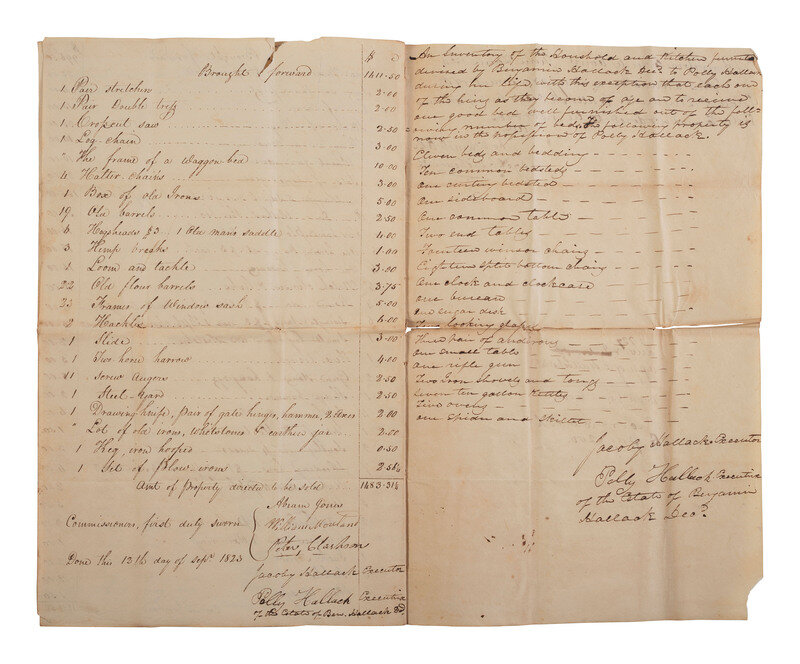 $ c
Brought forward 1411-50
1 Pair stretchers 2.00
1 Pair Double trees 2.00
1 Cropcut saw 2-50
1 Log-chain 3-00
" The frame of a waggon bed 10.00
4 Halter-chains 3-00
1 Box of old Irons 5.00
19 Old barrels 2.50
6 Hogsheads $3 .. 1 Old man's saddle 4.00
3 Hemp breaks 1.00
1 Loom and tackle 3.00
22 Old flour barrels 3-75
23 Frames of Window sash 5.00
2 Hackles 4.00
1 Slide 3-00
1 Two horse harrow 4.00
11 Screw Augers 2-50
1 Steel-yard 2-50
1 Drawing knife, pair of gate hinges, hammer, 2 2.00
" Lot of old irons, whetstones & earthen jar 2.00
1 Keg iron hooped 0-50
1 Set of Plow irons 2.56¼
Amt of Property directed to be sold 1483-31¼
Abram Jones
Commissioners, first duly sworn William
Peter Clarkson
Done this 13th day of Sept. 1823
Jacoby Hallack Executor
Polly Hallack Executrix
of the Estate of Ben. Hallack
An Inventory of the Houshold and Kitchen
devised by Benjamin Hallack Decd. to Polly Hallack
during her life with this exception that each one
of the heirs as they become of age are to receive
one good bed well furnished out of the foll-
owing number of beds, The following property is
now in the possession of Polly Hallack.
Eleven beds and bedding
Ten common bedsteds
One bedsted
One sideboard
One common table
Two end tables
Fourteen winsor chairs
Eighteen split bottom chairs
One clock and clockcase
one bureau
one sugar disk
looking glass
Three pair of andirons
one small table
one rifle gun
Two Iron shovels and tongs
Seven ten gallon Kettles
Two ovens
one spider and skillet
Jacoby Hallack Executor
Polly Hallack Executrix
of the Estate of Benjamin
Hallack Decd.